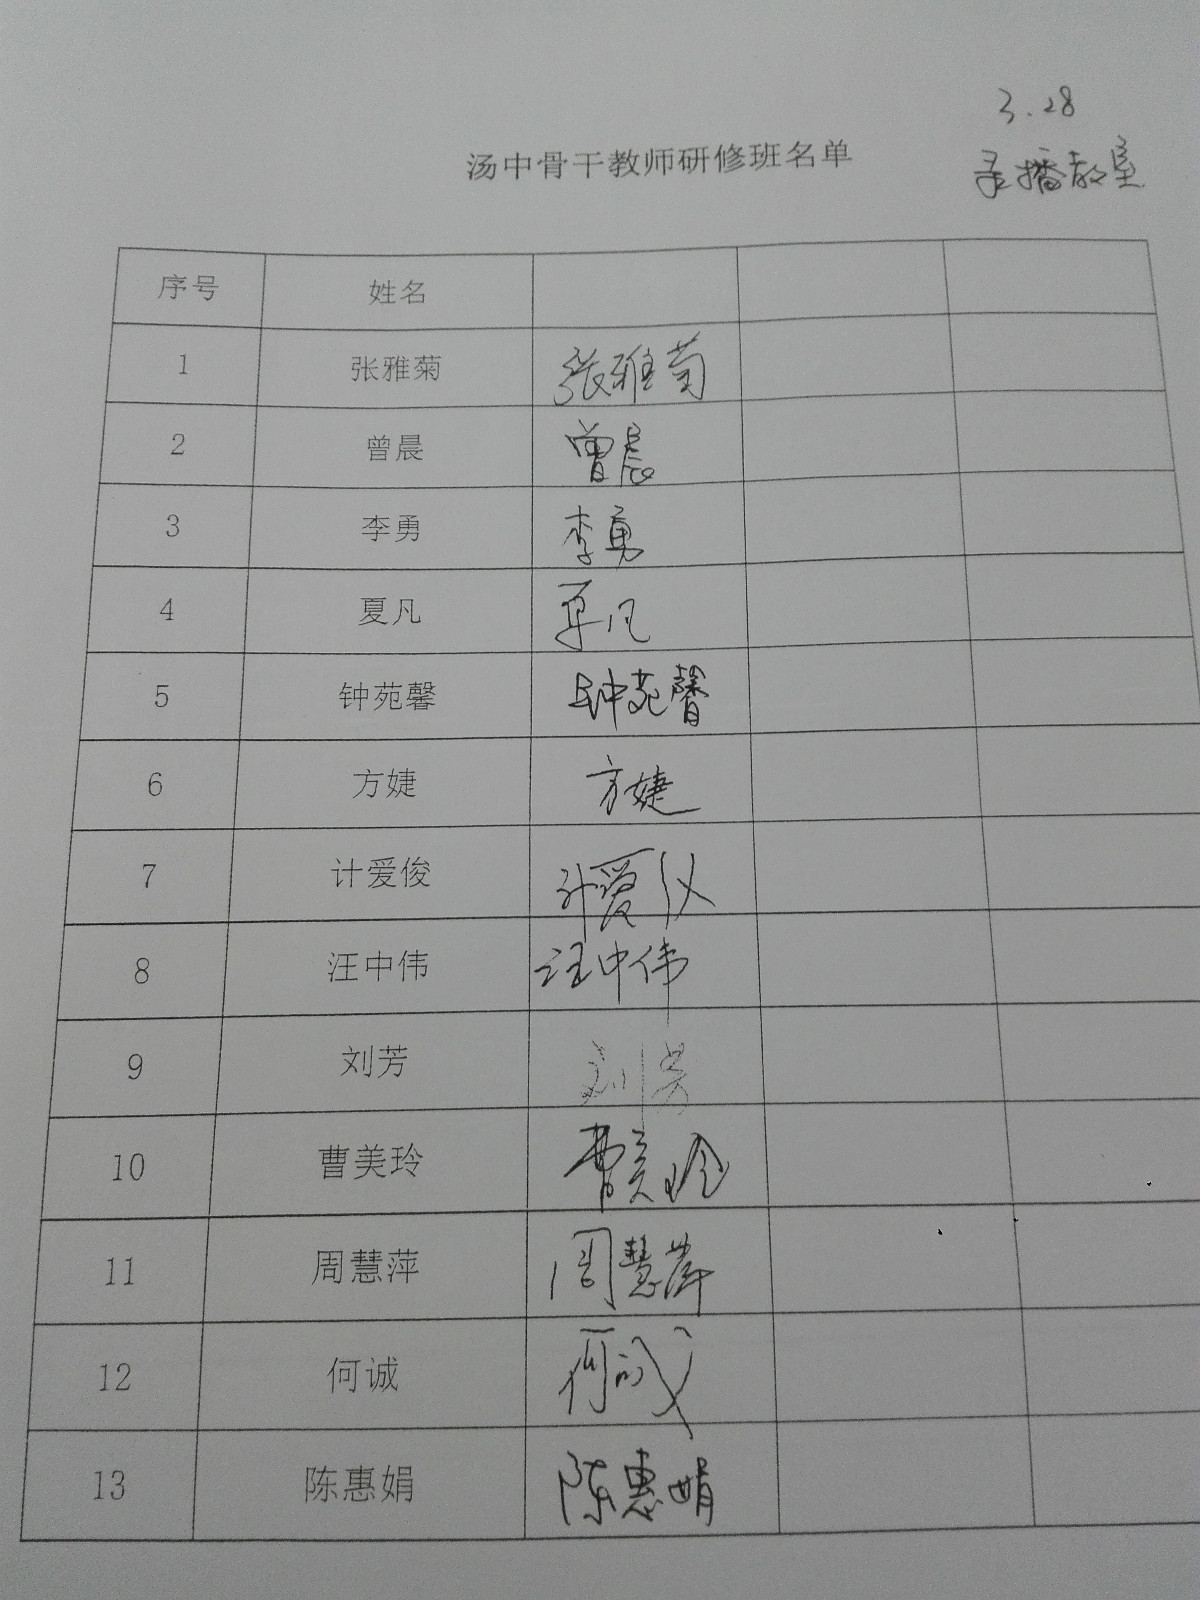 3.28
汤中骨干教师研修班名单
录播教室
序号 姓名
1 张雅菊 张雅菊
2 曾晨 曾晨
3 李勇 李勇
4 夏凡 夏凡
5 钟苑馨 钟苑馨
6 方婕 方婕
7 计爱俊 计爱俊
8 汪中伟 汪中伟
9 刘芳 刘芳
10 曹美玲 曹美玲
11 周慧萍 周慧萍
12 何诚 何诚
13 陈惠娟 陈惠娟